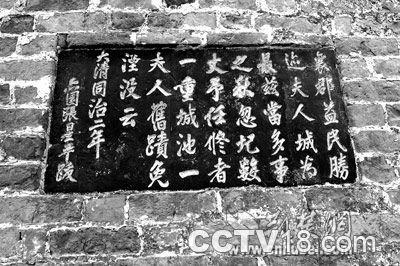 襄郡益民勝
迹夫人城為
最茲當多事
之秋忽圮數
丈予任修者
一重城池一
夫人舊蹟免
湮没云
大清同治二年
CCTV18.com